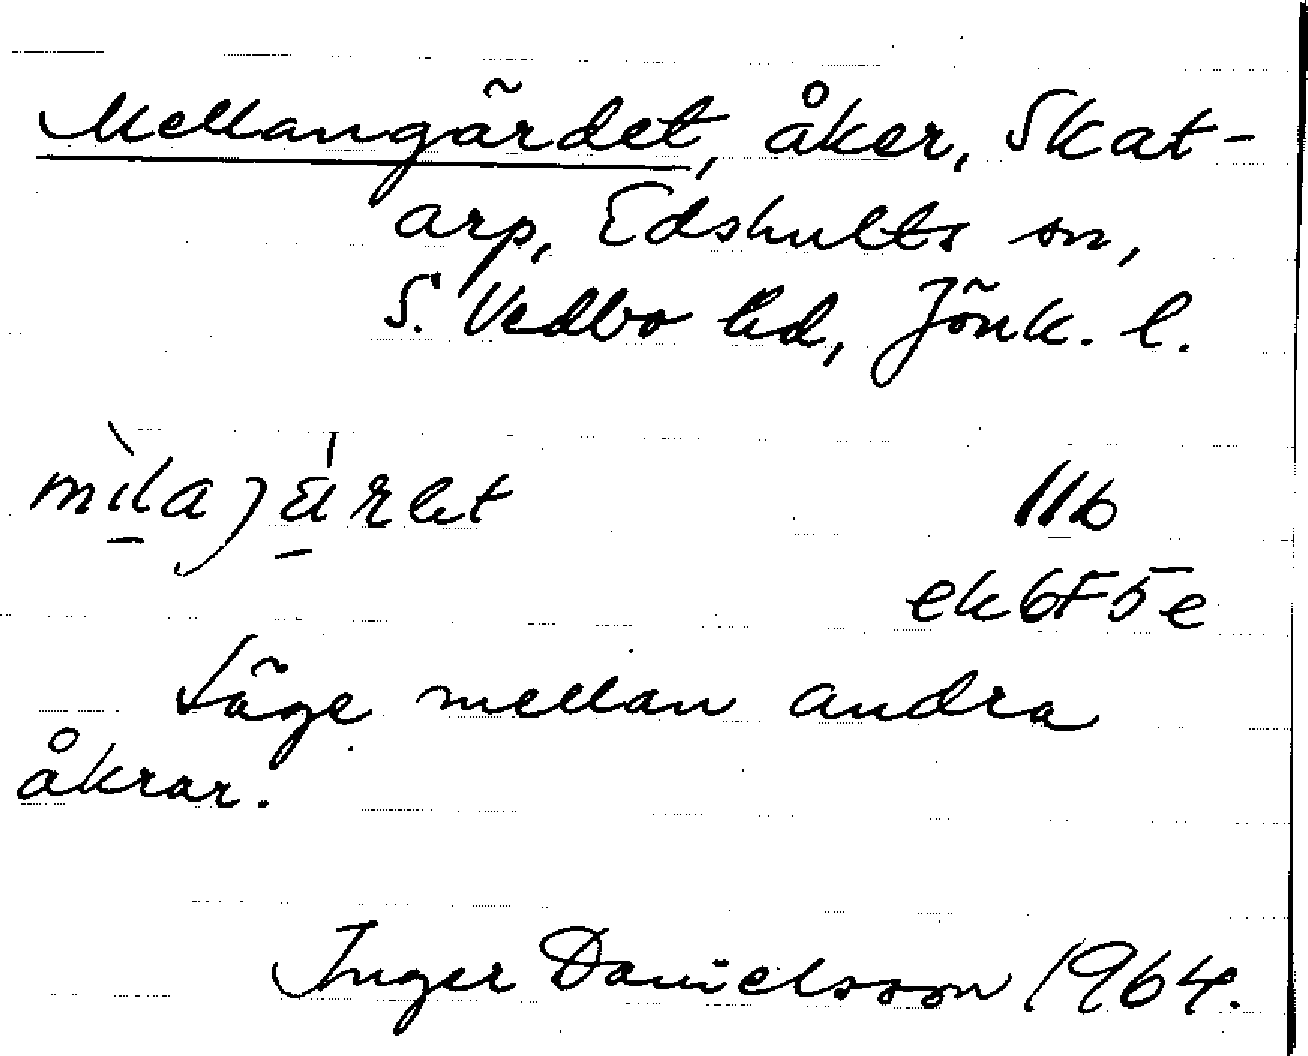 Mellangärdet, åker, Skat-
arp, Edshults sn,
S. Vedbo hd, Jönk. l.
11b
ek 6F5e
Läge mellan andra
åkrar.
Inger Danielsson 1964.